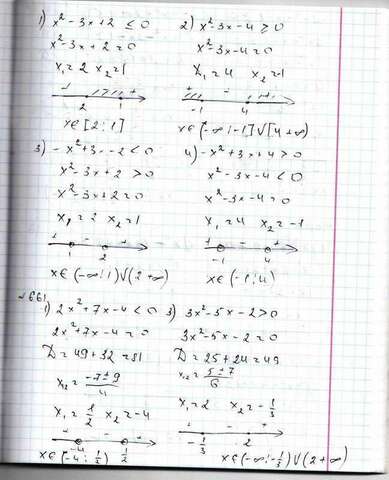 1) x² - 3x + 2 ≤ 0
x² - 3x + 2 = 0
x₁ = 2 x₂ = 1
+ - +
2 1
x ∈ [2 ; 1]
2) x² - 3x - 4 ≥ 0
x² - 3x - 4 = 0
x₁ = 4 x₂ = -1
+ - +
-1 4
x ∈ (-∞ ; -1] ∨ [4 + ∞)
3) - x² + 3x - 2 < 0
x² - 3x + 2 > 0
x² - 3x + 2 = 0
x₁ = 2 x₂ = 1
+ - +
1 2
x ∈ (-∞ ; 1) ∨ (2 + ∞)
4) - x² + 3x + 4 > 0
x² - 3x - 4 < 0
x² - 3x - 4 = 0
x₁ = 4 x₂ = -1
+ - +
-1 4
x ∈ (-1 ; 4)
№661
1) 2x² + 7x - 4 < 0
2x² + 7x - 4 = 0
D = 49 + 32 = 81
x₁,₂ = (-7 ± 9)/4
x₁ = 1/2 x₂ = -4
+ - +
-4 1/2
x ∈ (-4 ; 1/2)
3) 3x² - 5x - 2 > 0
3x² - 5x - 2 = 0
D = 25 + 24 = 49
x₁,₂ = (5 ± 7)/6
x₁ = 2 x₂ = -1/3
+ - +
-1/3 2
x ∈ (-∞ ; -1/3) ∨ (2 + ∞)